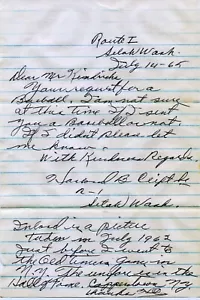 Route 1
Selah Wash.
July 14-65
Dear Mr
Your request for a
Baseball, I am not sure
at this time I sent
you a Baseball or not.
If I didn't please let
me know.
With Kindness Regards
R-1
Selah Wash.
is a picture
taken in July 1963
Just before I went to
the Old timers game in
N.Y. The uniform is in the
Hall of Fame. Cooperstown N.Y.